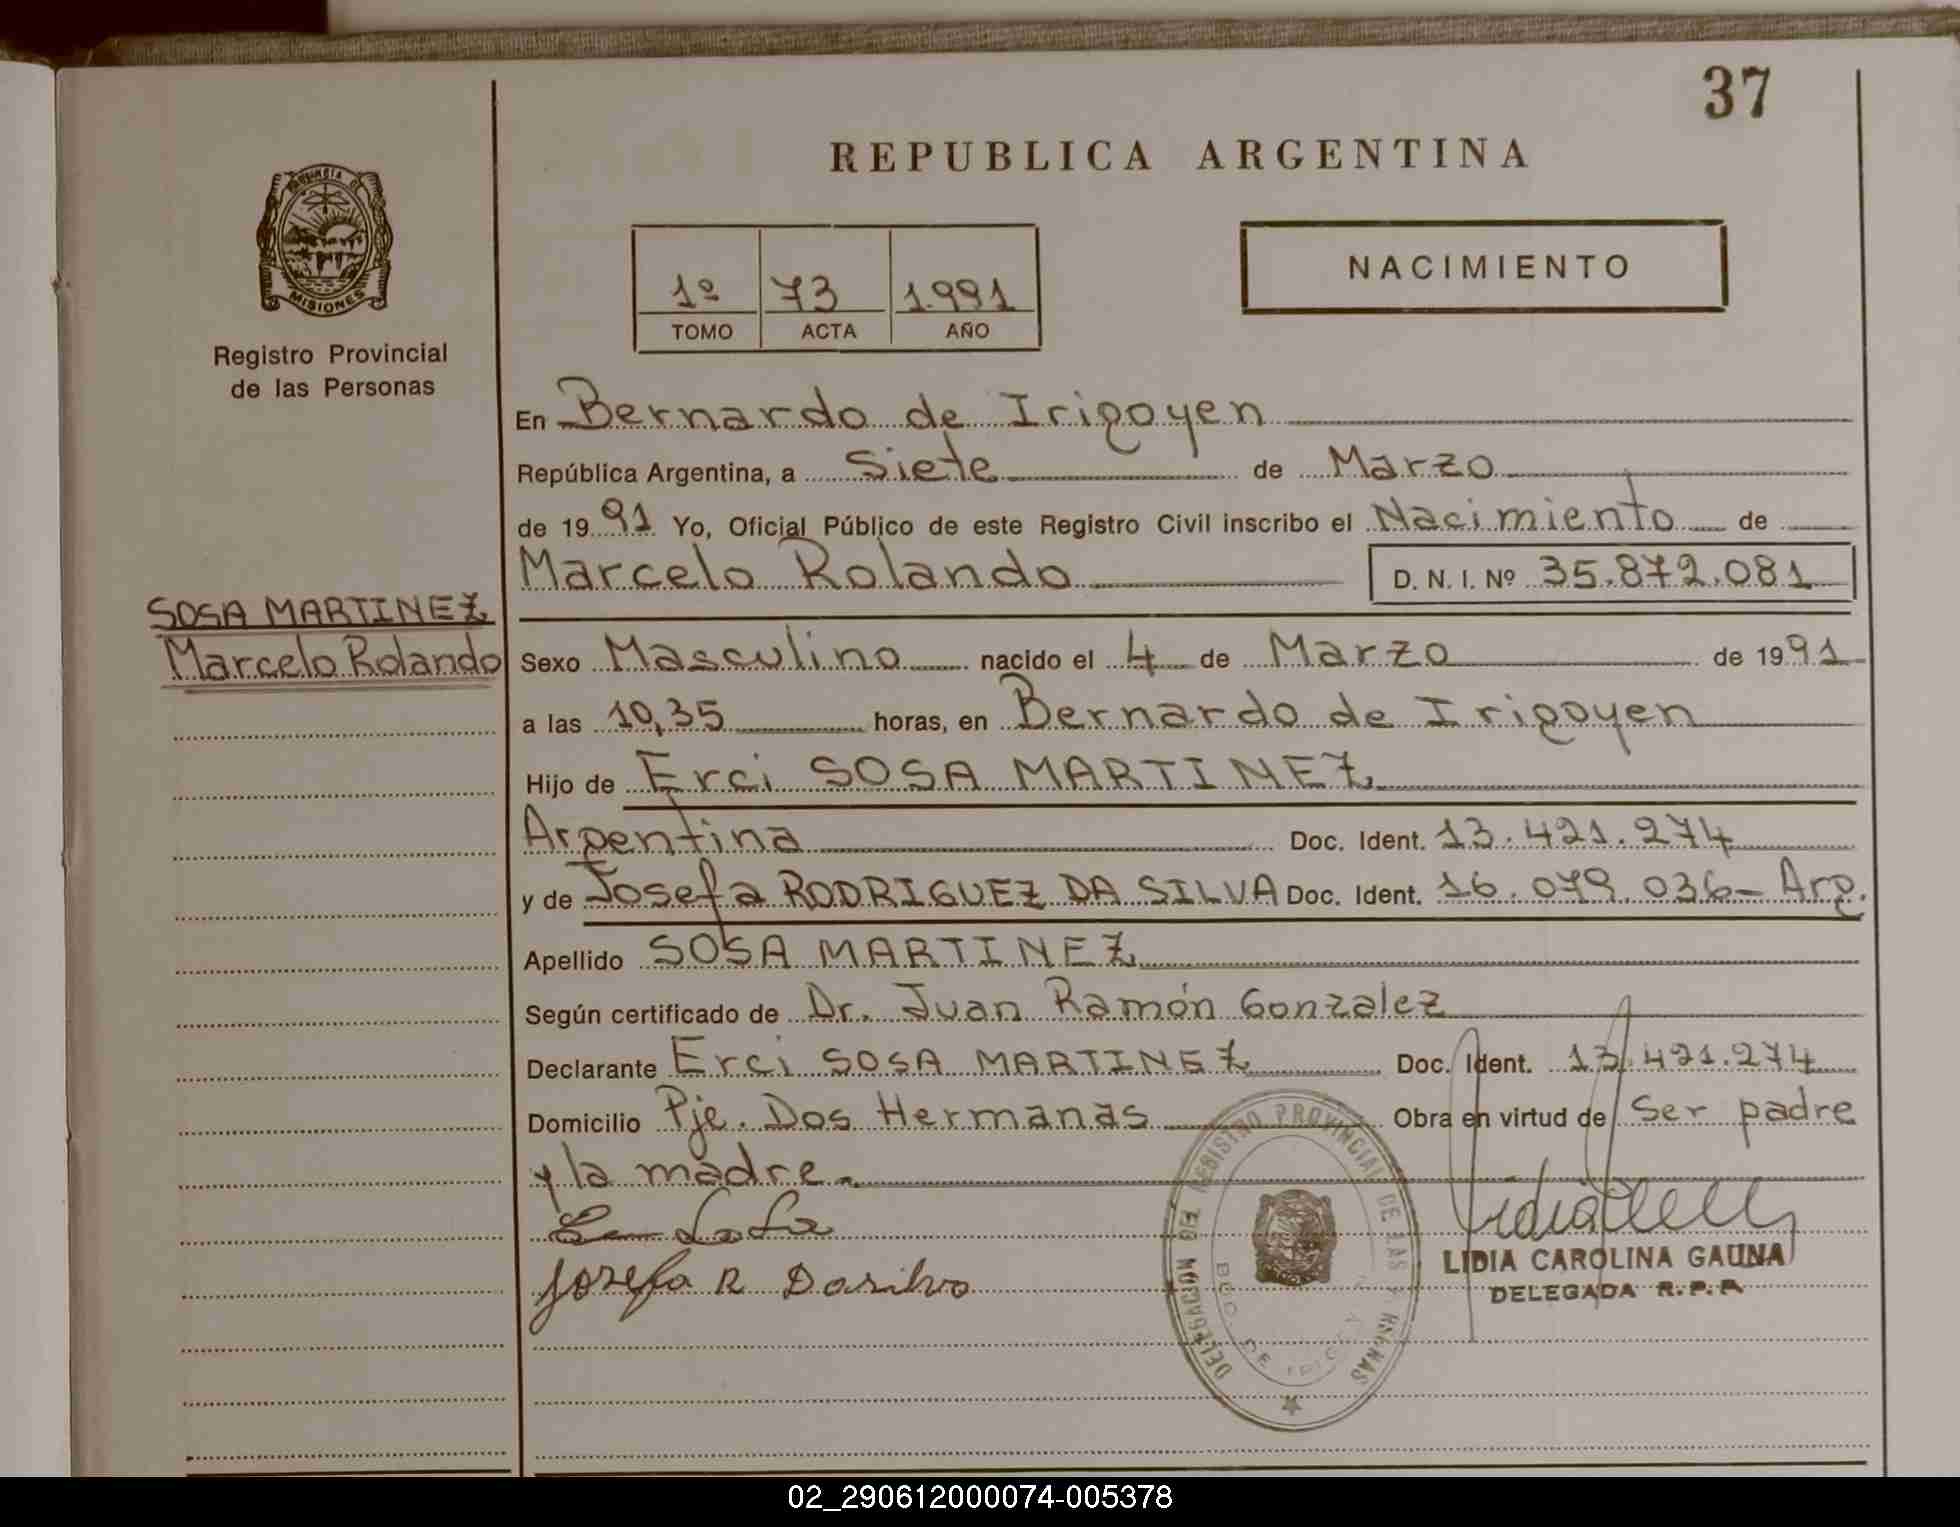 37
REPUBLICA ARGENTINA
PROVINCIA DE
MISIONES
Registro Provincial
de las Personas
1º 73 1.991
TOMO ACTA AÑO
NACIMIENTO
En Bernardo de Irigoyen
República Argentina, a Siete de Marzo
de 19 91 Yo, Oficial Público de este Registro Civil inscribo el Nacimiento de
Marcelo Rolando D. N. I. Nº 35.872.081
SOSA MARTINEZ
Marcelo Rolando
Sexo Masculino nacido el 4 de Marzo de 19 91
a las 10,35 horas, en Bernardo de Irigoyen
Hijo de Erci SOSA MARTINEZ
Argentina Doc. Ident. 13.421.274
y de Josefa RODRIGUEZ DA SILVA Doc. Ident. 16.079.036- Arg.
Apellido SOSA MARTINEZ
Según certificado de Dr. Juan Ramón Gonzalez
Declarante Erci SOSA MARTINEZ Doc. Ident. 13.421.274
Domicilio Pje. Dos Hermanas Obra en virtud de Ser padre
y la madre.
Josefa R Dasilva
LIDIA CAROLINA GAUNA
DELEGADA R.P.P
DELEGACION DEL REGISTRO PROVINCIAL DE LAS PERSONAS
BDO. DE IRIGOYEN
02_290612000074-005378